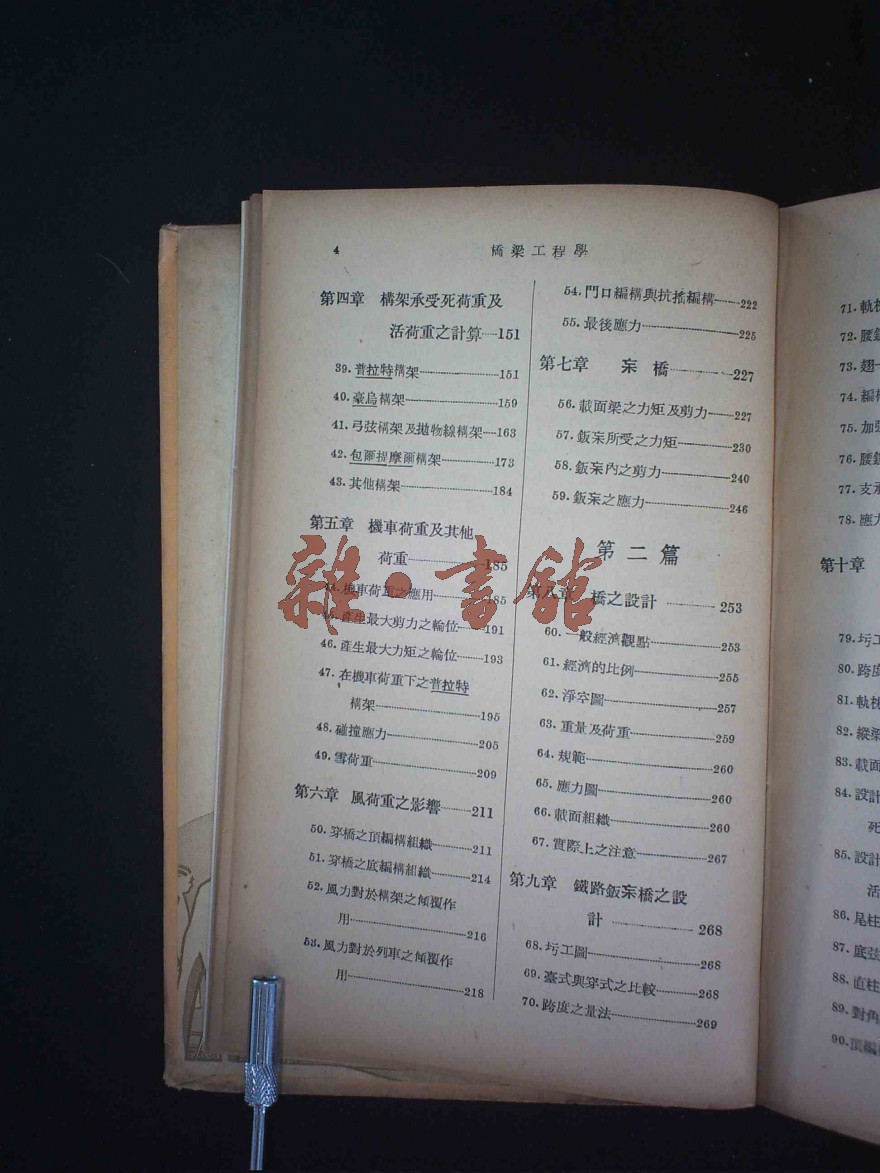 4
橋梁工程學
第四章 構架承受死荷重及
活荷重之計算 151
39. 普拉特構架 151
40. 豪烏構架 159
41. 弓弦構架及拋物線構架 163
42. 包爾提摩爾構架 173
43. 其他構架 184
第五章 機車荷重及其他
荷重 185
44. 機車荷重之應用 185
45. 產生最大剪力之輪位 191
46. 產生最大力矩之輪位 193
47. 在機車荷重下之普拉特
構架 195
48. 碰撞應力 205
49. 雪荷重 209
第六章 風荷重之影響 211
50. 穿橋之頂編構組織 211
51. 穿橋之底編構組織 214
52. 風力對於構架之傾覆作
用 216
53. 風力對於列車之傾覆作
用 218
54. 門口編構與抗搖編構 222
55. 最後應力 225
第七章 㭍橋 227
56. 載面梁之力矩及剪力 227
57. 鈑㭍所受之力矩 230
58. 鈑㭍內之剪力 240
59. 鈑㭍之應力 246
第二篇
第八章 橋之設計 253
60. 一般經濟觀點 253
61. 經濟的比例 255
62. 淨空圖 257
63. 重量及荷重 259
64. 規範 260
65. 應力圖 260
66. 載面組織 260
67. 實際上之注意 267
第九章 鐵路鈑㭍橋之設
計 268
68. 圬工圖 268
69. 臺式與穿式之比較 268
70. 跨度之量法 269
雜·書舘
71. 軌
72. 腰
73. 翅
74. 編
75. 加
76. 腰
77. 支承
78. 應力
第十章
79. 圬工
80. 跨度
81. 軌
82. 縱梁
83. 載面
84. 設計
死
85. 設計
活
86. 尾柱
87. 底弦
88. 直柱
89. 對角
90. 頂編